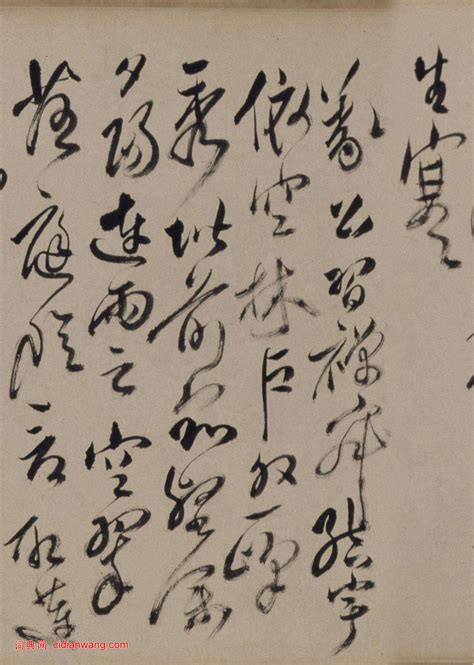 生寒
義公習禪寂結宇
依空林戶外一峰
秀階前眾壑深
夕陽連雨足空翠
落庭陰看取蓮
词典网 cidianwang.com